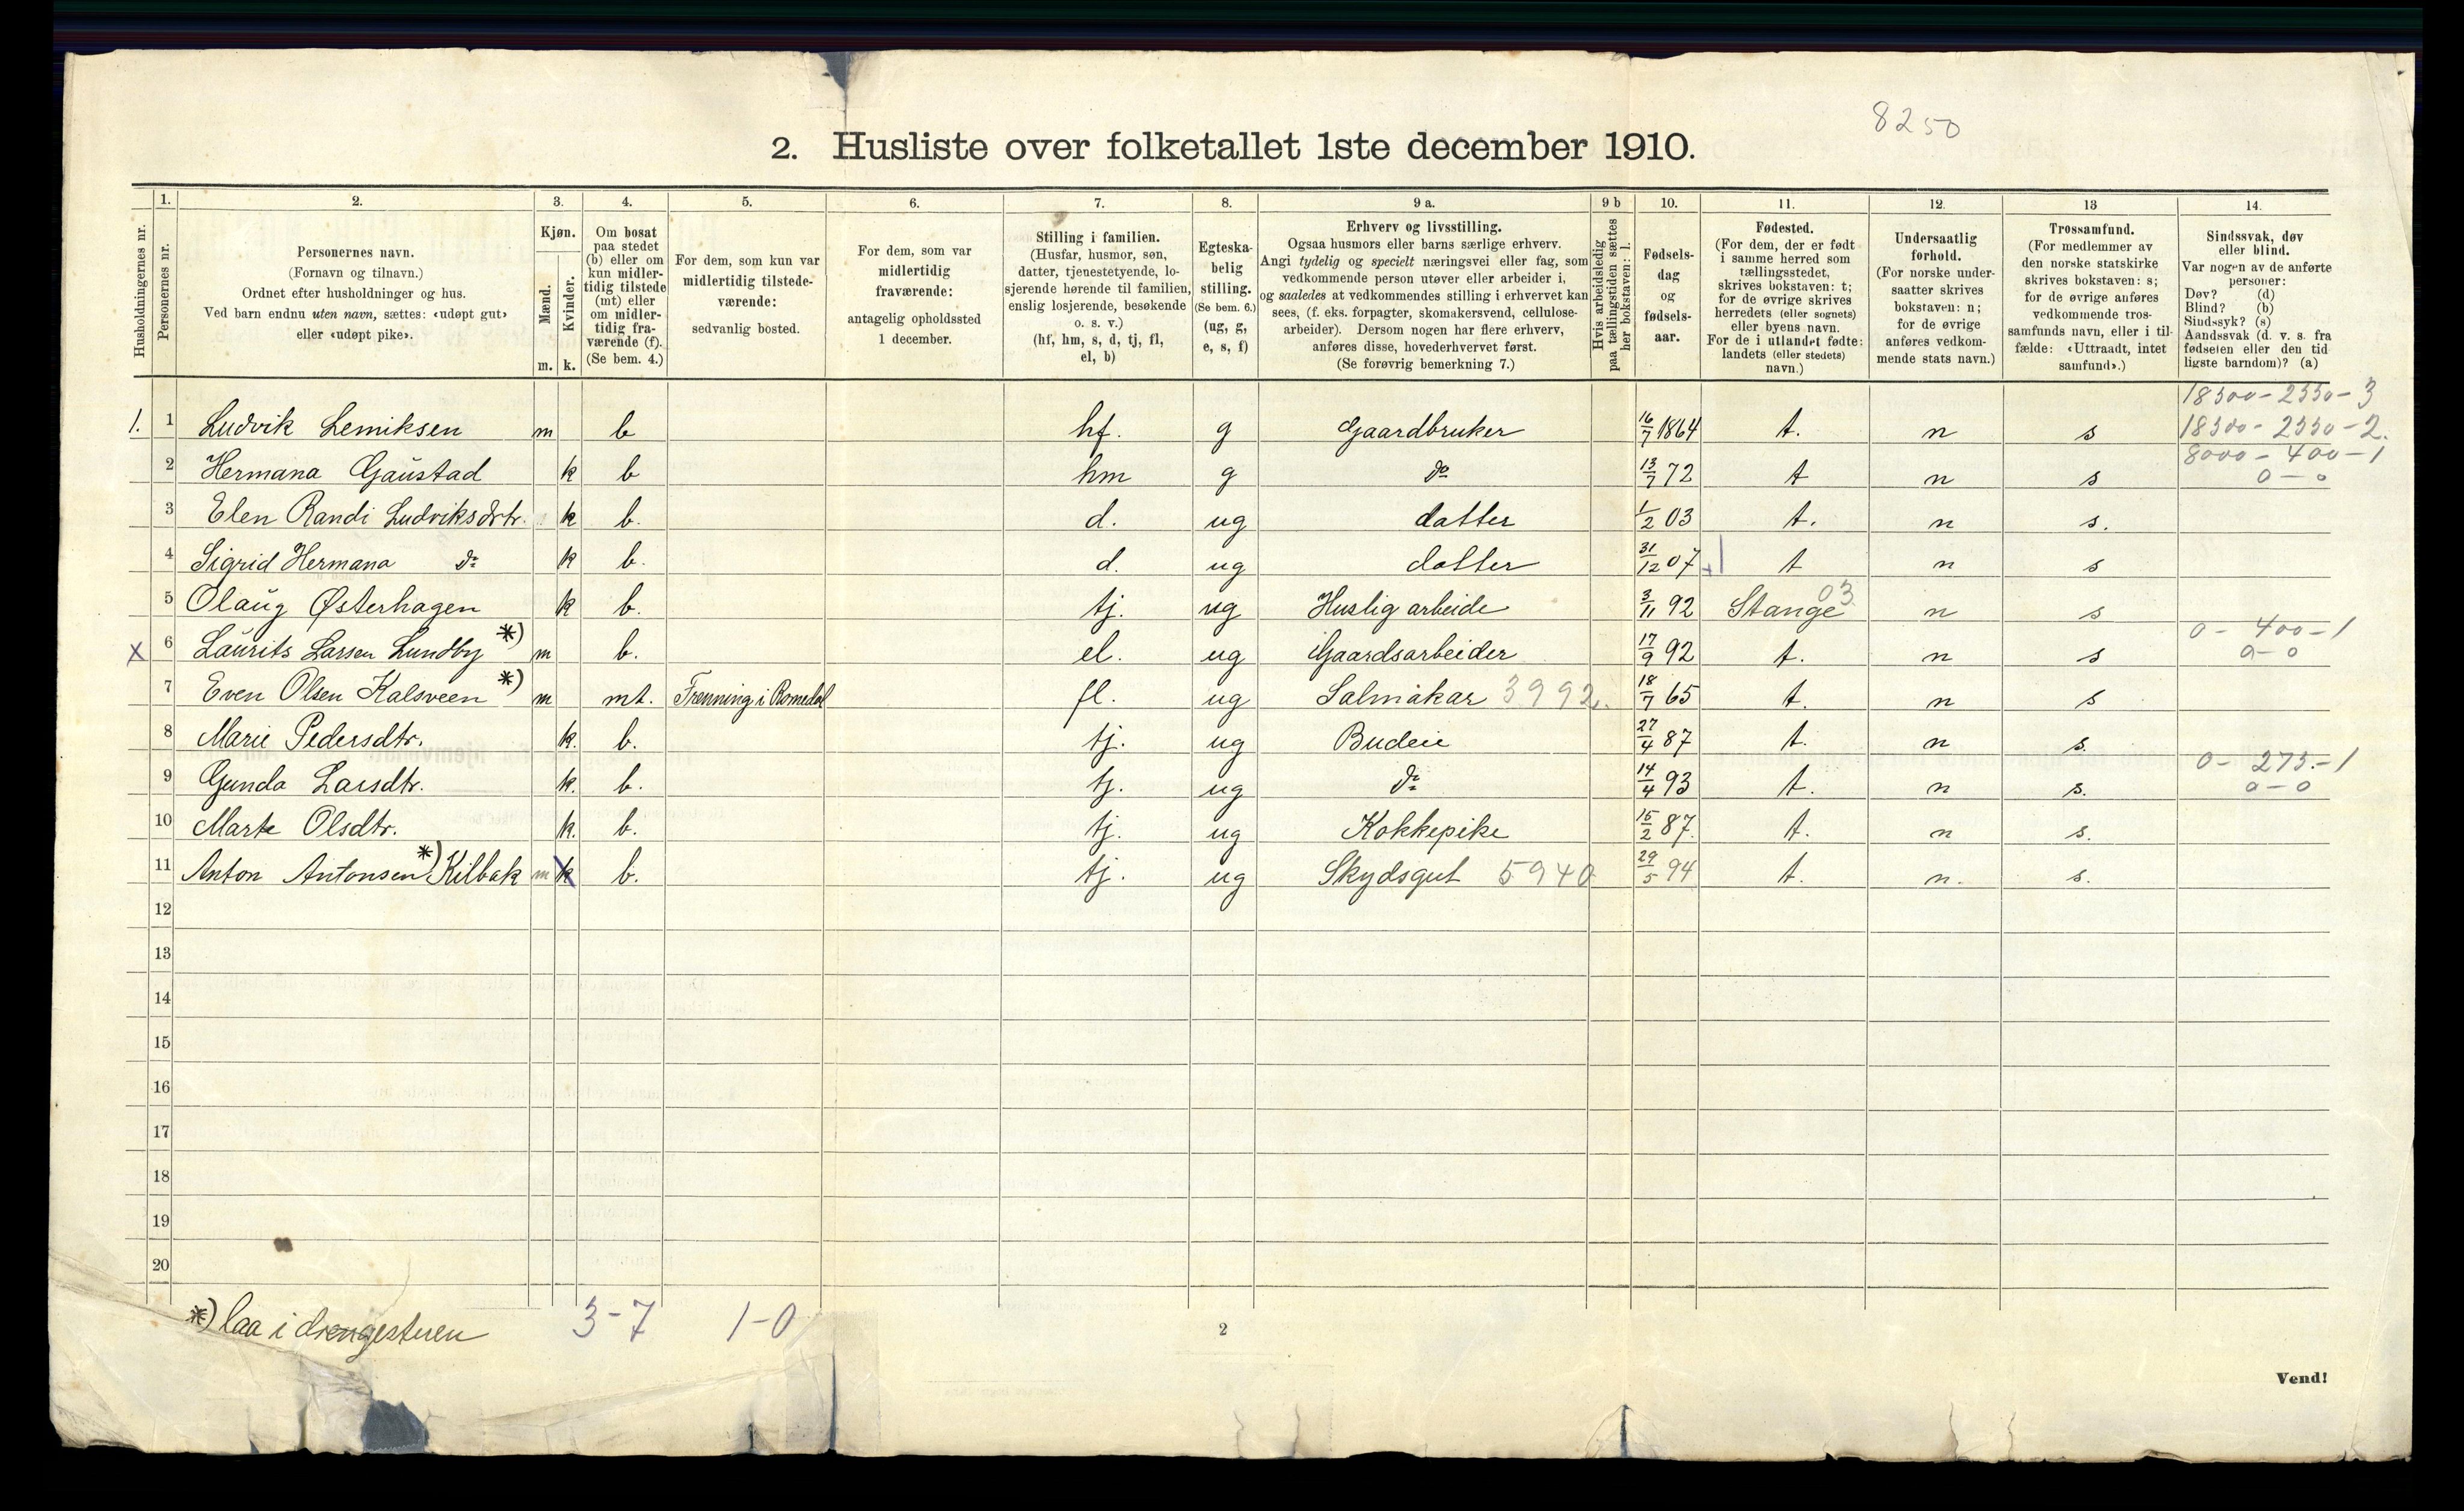 8250
2. Husliste over folketallet 1ste december 1910.
1. 2. 3. 4. 5. 6. 7. 8. 9 a. 9 b 10. 11. 12. 13 14.
Husholdningernes nr.
Personernes nr.
Personernes navn.
(Fornavn og tilnavn.)
Ordnet efter husholdninger og hus.
Ved barn endnu uten navn, sættes: «udøpt gut»
eller «udøpt pike».
Kjøn.
Mænd.
Kvinder.
m. k.
Om bosat
paa stedet
(b) eller om
kun midler-
tidig tilstede
(mt) eller
om midler-
tidig fra-
værende (f).
(Se bem. 4.)
For dem, som kun var
midlertidig tilstede-
værende:
sedvanlig bosted.
For dem, som var
midlertidig
fraværende:
antagelig opholdssted
1 december.
Stilling i familien.
(Husfar, husmor, søn,
datter, tjenestetyende, lo-
sjerende hørende til familien,
enslig losjerende, besøkende
o. s. v.)
(hf, hm, s, d, tj, fl,
el, b)
Egteska-
belig
stilling.
(Se bem. 6.)
(ug, g,
e, s, f)
Erhverv og livsstilling.
Ogsaa husmors eller barns særlige erhverv.
Angi tydelig og specielt næringsvei eller fag, som
vedkommende person utøver eller arbeider i,
og saaledes at vedkommendes stilling i erhvervet kan
sees, (f. eks. forpagter, skomakersvend, cellulose-
arbeider). Dersom nogen har flere erhverv,
anføres disse, hovederhvervet først.
(Se forøvrig bemerkning 7.)
Hvis arbeidsledig
paa tællingstiden sættes
her bokstaven: l.
Fødsels-
dag
og
fødsels-
aar.
Fødested.
(For dem, der er født
i samme herred som
tællingsstedet,
skrives bokstaven: t;
for de øvrige skrives
herredets (eller sognets)
eller byens navn.
For de i utlandet fødte:
landets (eller stedets)
navn.)
Undersaatlig
forhold.
(For norske under-
saatter skrives
bokstaven: n;
for de øvrige
anføres vedkom-
mende stats navn.)
Trossamfund.
(For medlemmer av
den norske statskirke
skrives bokstaven: s;
for de øvrige anføres
vedkommende tros-
samfunds navn, eller i til-
fælde: «Uttraadt, intet
samfund».)
Sindssvak, døv
eller blind.
Var nogen av de anførte
personer:
Døv? (d)
Blind? (b)
Sindssyk? (s)
Aandssvak (d. v. s. fra
fødselen eller den tid-
ligste barndom)? (a)
18500 - 2550 - 3
1. 1 Ludvik Lemiksen m b hf. g Gaardbruker 16/7 1864 t. n s 18500 - 2550 - 2.
8000 - 400 - 1
2 Hermana Gaustad k b hm g do 13/7 72 t n s 0 - 0
3 Elen Randi Ludviksdtr. k b. d. ug datter 1/2 03 t. n s.
4 Sigrid Hermana do k b. d. ug datter 31/12 07 t n s
5 Olaug Østerhagen k b. tj. ug Huslig arbeide 3/11 92 Stange 03 n s
0 - 400 - 1
x 6 Laurits Larsen Lundby *) m b. el. ug Gaardsarbeider 17/9 92 t. n s 0 - 0
7 Even Olsen Kalsveen *) m mt. Trenning i Romedal fl. ug Salmakar 3992. 18/7 65 t. n s
8 Marie Pedersdtr. k. b. tj. ug Budeie 27/4 87 t. n s.
0 - 275. - 1
9 Gunda Larsdtr. k. b. tj. ug do 14/4 93 t. n s. 0 - 0
10 Marte Olsdtr. k. b. tj. ug Kokkepike 15/2 87. t. n s.
11 Anton Antonsen *) Kilbak m k b. tj. ug Skydsgut 5940 29/5 94 t. n. s.
12
13
14
15
16
17
18
19
20
*) laa i drengestuen 3-7 1-0
2
Vend!